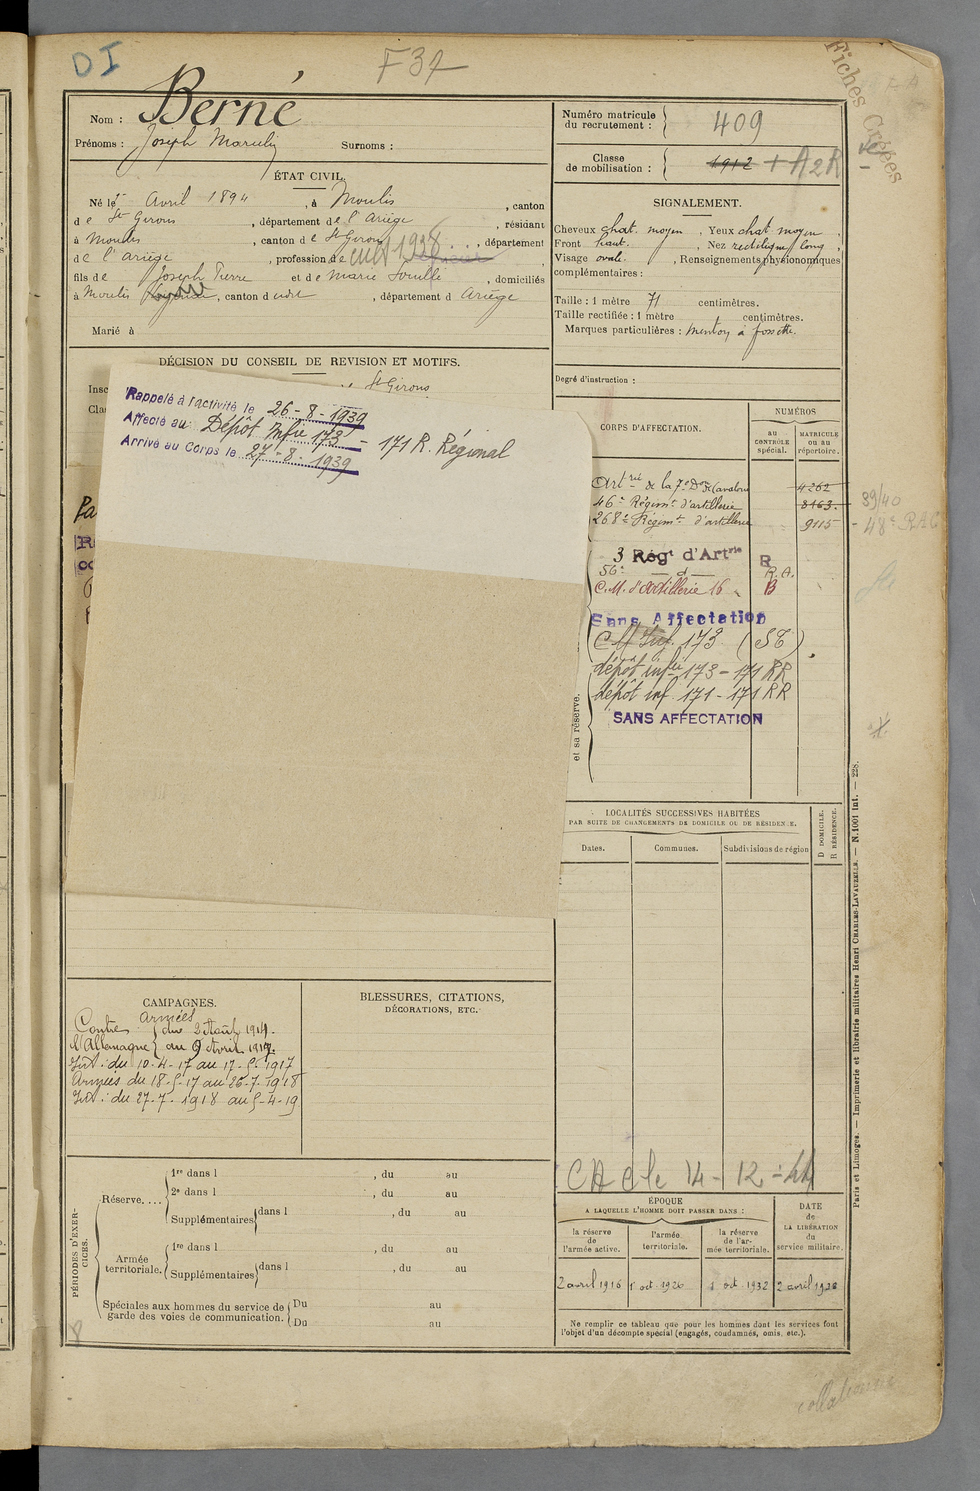 DI
F37
Fiches Créées
Nom : Berné
Prénoms : Joseph Marcelin Surnoms :
ÉTAT CIVIL.
Né le 5 Avril 1894, à Moulis, canton
de St Girons, département de l'Ariège, résidant
à Moulis, canton de St Girons, département
de l'ariège, profession de cult
fils de Joseph Pierre et de Marie Soulle, domiciliés
à Moulis, canton dudit, département d Ariège
Marié à
Numéro matricule
du recrutement : 409
Classe
de mobilisation : 1912 + A2R
SIGNALEMENT.
Cheveux chat. moyen, Yeux chat moyen,
Front haut., Nez rectiligne long,
Visage ovale., Renseignements physionomiques
complémentaires :
Taille : 1 mètre 71 centimètres.
Taille rectifiée : 1 mètre centimètres.
Marques particulières : menton à fossette.
Degré d'instruction :
DÉCISION DU CONSEIL DE REVISION ET MOTIFS.
St Girons
Rappelé à l'activité le 26-8-1939
Affecté au: Dépôt Infie 173 - 171 R. Régional
Arrivé au Corps le 27-8-1939
CORPS D'AFFECTATION.
NUMÉROS
au
CONTRÔLE
spécial.
MATRICULE
ou au
répertoire.
Artrie de la 7e Don de Cavalerie 4262
46e Régimt d'artillerie 8163.
268e Régimt d'artillerie 9115
39/40
48e RAC
3 Régt d'Artrie R
56e d R.A.
C.M. d'Artillerie 16 B
Sans Affectation
C M Inf. 173 (SE)
dépôt infie 173 - 171 RR
dépôt inf. 171 - 171 RR
SANS AFFECTATION
et sa réserve.
LOCALITÉS SUCCESSIVES HABITÉES
PAR SUITE DE CHANGEMENTS DE DOMICILE OU DE RÉSIDENCE.
Dates.
Communes.
Subdivisions de région
D DOMICILE.
R RÉSIDENCE.
CAMPAGNES.
Contre l'Allemagne
armées
du 2 Août 1914.
au 9 Avril 1917.
Int : du 10-4-17 au 17-5-1917
Armées du 18-5-17 au 26-7-1918
Int : du 27-7-1918 au 5-4-19
BLESSURES, CITATIONS,
DÉCORATIONS, ETC.
CA C le 14-12-44
PÉRIODES D'EXERCICES.
Réserve....
1re dans l , du au
2e dans l , du au
Supplémentaires dans l , du au
Armée
territoriale.
1re dans l , du au
Supplémentaires dans l , du au
Spéciales aux hommes du service de
garde des voies de communication.
Du au
Du au
ÉPOQUE
A LAQUELLE L'HOMME DOIT PASSER DANS :
la réserve
de
l'armée active.
l'armée
territoriale.
la réserve
de l'ar-
mée territoriale.
DATE
de
LA LIBÉRATION
du
service militaire.
2 avril 1916
1 oct 1926
1 oct 1932
2 avril 1928
Ne remplir ce tableau que pour les hommes dont les services font
l'objet d'un décompte spécial (engagés, condamnés, omis, etc.).
8
collationné
Paris et Limoges. — Imprimerie et librairie militaires Henri CHARLES-LAVAUZELLE. — N. 1001 int. — 228.